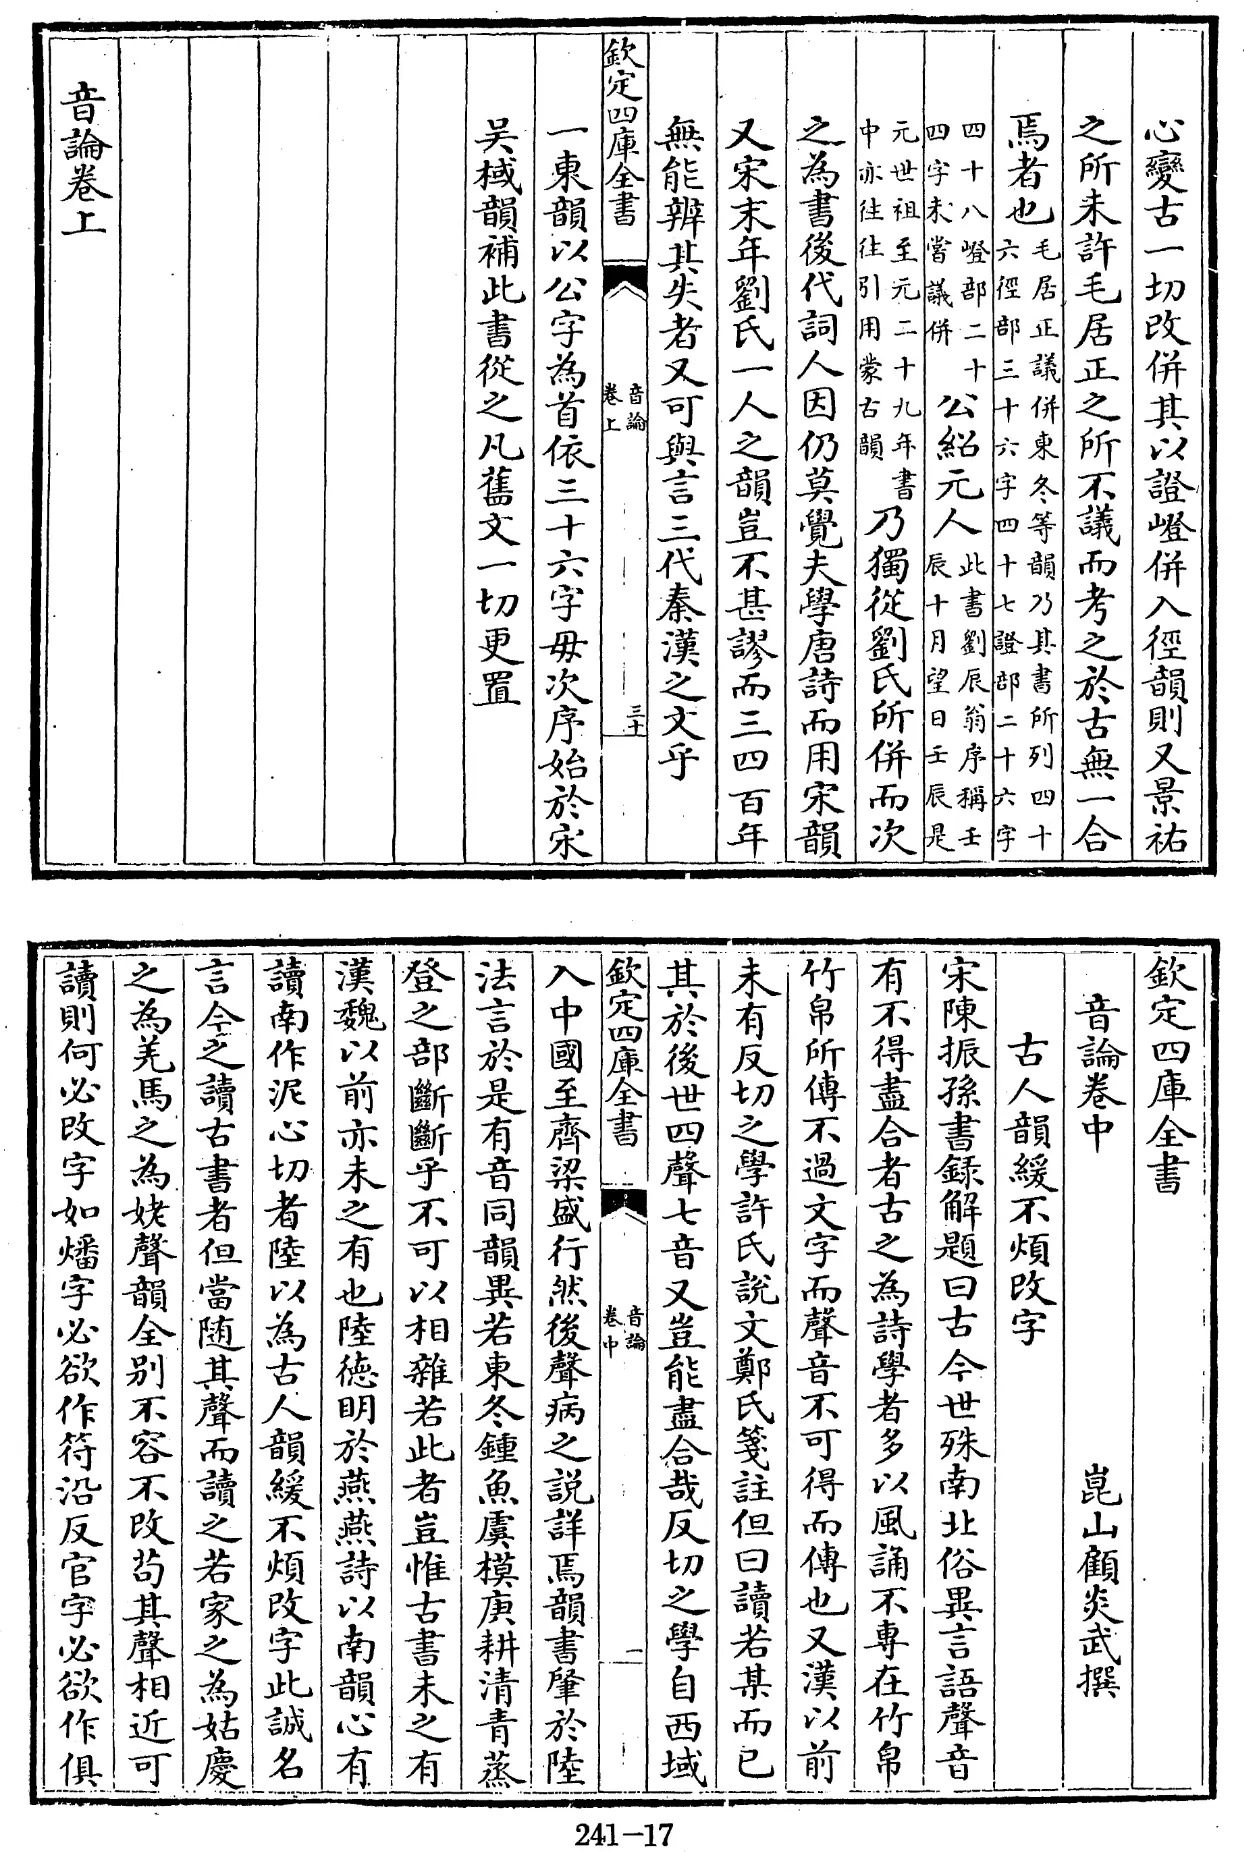 心變古一切改併其以證嶝併入徑韻則又景祐
之所未許毛居正之所不議而考之於古無一合
焉者也毛居正議併東冬等韻乃其書所列四十
六徑部三十六字四十七證部二十六字
四十八嶝部二十
四字未嘗議併公紹元人此書劉辰翁序稱壬
辰十月望日壬辰是
元世祖至元二十九年書
中亦往往引用蒙古韻乃獨從劉氏所併而次
之為書後代詞人因仍莫覺夫學唐詩而用宋韻
又宋末年劉氏一人之韻豈不甚謬而三四百年
無能辨其失者又可與言三代秦漢之文乎
欽定四庫全書
音論
卷上
三十
一東韻以公字為首依三十六字毋次序始於宋
吴棫韻補此書從之凡舊文一切更置
音論卷上
欽定四庫全書
音論卷中
崑山顧炎武撰
古人韻緩不煩改字
宋陳振孫書録解題曰古今世殊南北俗異言語聲音
有不得盡合者古之為詩學者多以風誦不專在竹帛
竹帛所傳不過文字而聲音不可得而傳也又漢以前
未有反切之學許氏說文鄭氏箋註但曰讀若某而已
其於後世四聲七音又豈能盡合哉反切之學自西域
欽定四庫全書
音論
卷中
一
入中國至齊梁盛行然後聲病之說詳焉韻書肇於陸
法言於是有音同韻異若東冬鍾魚虞模庚耕清青蒸
登之部斷斷乎不可以相雜若此者豈惟古書未之有
漢魏以前亦未之有也陸德明於燕燕詩以南韻心有
讀南作泥心切者陸以為古人韻緩不煩改字此誠名
言今之讀古書者但當随其聲而讀之若家之為姑慶
之為羌馬之為姥聲韻全别不容不改苟其聲相近可
讀則何必改字如燔字必欲作符沿反官字必欲作俱
241-17